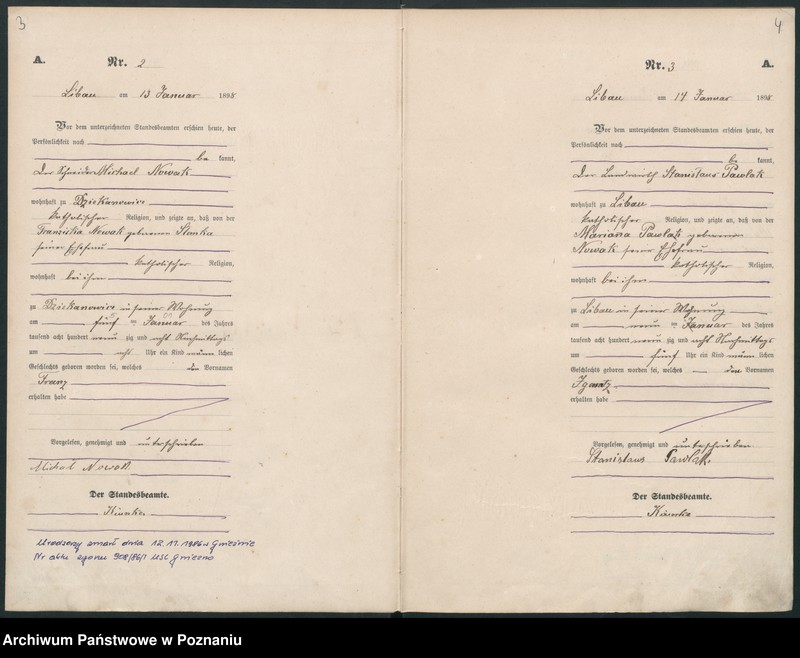 3
A.
Nr. 2
Libau am 13 Januar 1898
Vor dem unterzeichneten Standesbeamten erschien heute, der
Persönlichkeit nach
be kannt,
Der Schneider Michael Nowak
wohnhaft zu Dziekanowice
katholischer Religion, und zeigte an, daß von der
Franziska Nowak geborenen
seiner Ehefrau
katholischer Religion,
wohnhaft bei ihm
zu Dziekanowice in seiner Wohnung
am fünf ten Januar des Jahres
tausend acht hundert neun zig und acht Nachmittags
um acht Uhr ein Kind männ lichen
Geschlechts geboren worden sei, welches den Vornamen
Franz
erhalten habe
Vorgelesen, genehmigt und unterschrieben
Michał Nowak
Der Standesbeamte.
Urodzony zmarł dnia 12.11.1986 w Gnieźnie
Nr aktu zgonu 908/86/1 USC Gniezno
4
Nr. 3
A.
Libau am 14 Januar 1898
Vor dem unterzeichneten Standesbeamten erschien heute, der
Persönlichkeit nach
be kannt,
Der Landwirth Stanislaus Pawlak
wohnhaft zu Libau
katholischer Religion, und zeigte an, daß von der
Mariana Pawlak geborenen
Nowak seine Ehefrau
katholischer Religion,
wohnhaft bei ihm
zu Libau in seiner Wohnung
am neun ten Januar des Jahres
tausend acht hundert neun zig und acht Nachmittags
um fünf Uhr ein Kind männ lichen
Geschlechts geboren worden sei, welches den Vornamen
Ignatz
erhalten habe
Vorgelesen, genehmigt und unterschrieben
Stanislaus Pawlak.
Der Standesbeamte.
Archiwum Państwowe w Poznaniu